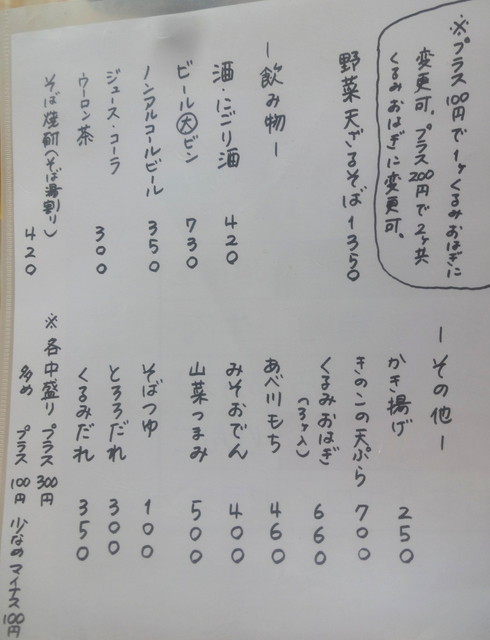 ※プラス100円で1ヶくるみおはぎに
変更可。プラス200円で2ヶ共
くるみおはぎに変更可。
野菜天ざるそば 1350
ー飲み物ー
酒・にごり酒 420
ビール大ビン 730
ノンアルコールビール 350
ジュース・コーラ
ウーロン茶 300
そば焼酎(そば湯割り) 420
ーその他ー
かき揚げ 250
きのこの天ぷら 700
くるみおはぎ 660
(3ヶ入)
あべ川もち 460
みそおでん 400
山菜つまみ 500
そばつゆ 100
とろろだれ 300
くるみだれ 350
※各中盛り プラス300円
多め プラス100円 少なめ マイナス100円